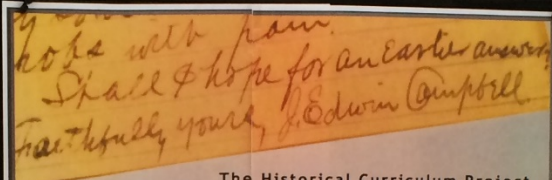 with pain.
Shall & hope for an Earlier answer
Faithfully yours, J. Edwin Campbell
The Historical Curriculum Project